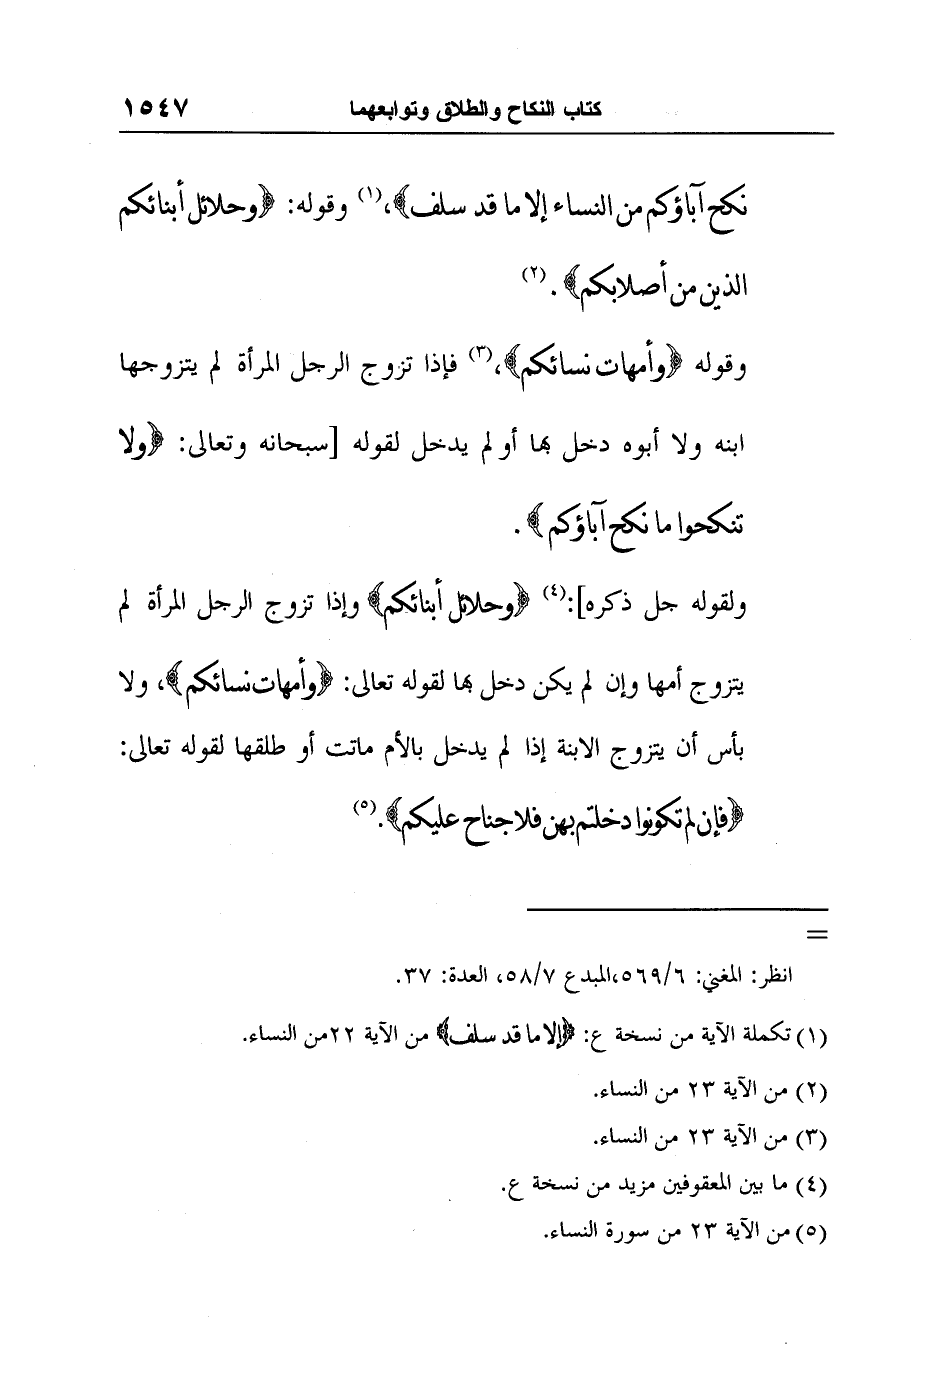 كتاب النكاح والطلاق وتوابعهما ١٥٤٧
نكح آباؤكم من النساء إلا ما قد سلف﴾،(١) وقوله: ﴿وحلائل أبنائكم
الذين من أصلابكم﴾.(٢)
وقوله ﴿وأمهات نسائكم﴾،(٣) فإذا تزوج الرجل المرأة لم يتزوجها
ابنه ولا أبوه دخل بها أو لم يدخل لقوله [سبحانه وتعالى: ﴿ولا
تنكحوا ما نكح آباؤكم﴾.
ولقوله جل ذكره]:(٤) ﴿وحلائل أبنائكم﴾ وإذا تزوج الرجل المرأة لم
يتزوج أمها وإن لم يكن دخل بها لقوله تعالى: ﴿وأمهات نسائكم﴾، ولا
بأس أن يتزوج الابنة إذا لم يدخل بالأم ماتت أو طلقها لقوله تعالى:
﴿فإن لم تكونوا دخلتم بهن فلا جناح عليكم﴾.(٥)
=
انظر: المغني: ٥٦٩/٦،المبدع ٥٨/٧، العدة: ٣٧.
(١) تكملة الآية من نسخة ع: ﴿إلا ما قد سلف﴾ من الآية ٢٢من النساء.
(٢) من الآية ٢٣ من النساء.
(٣) من الآية ٢٣ من النساء.
(٤) ما بين المعقوفين مزيد من نسخة ع.
(٥) من الآية ٢٣ من سورة النساء.